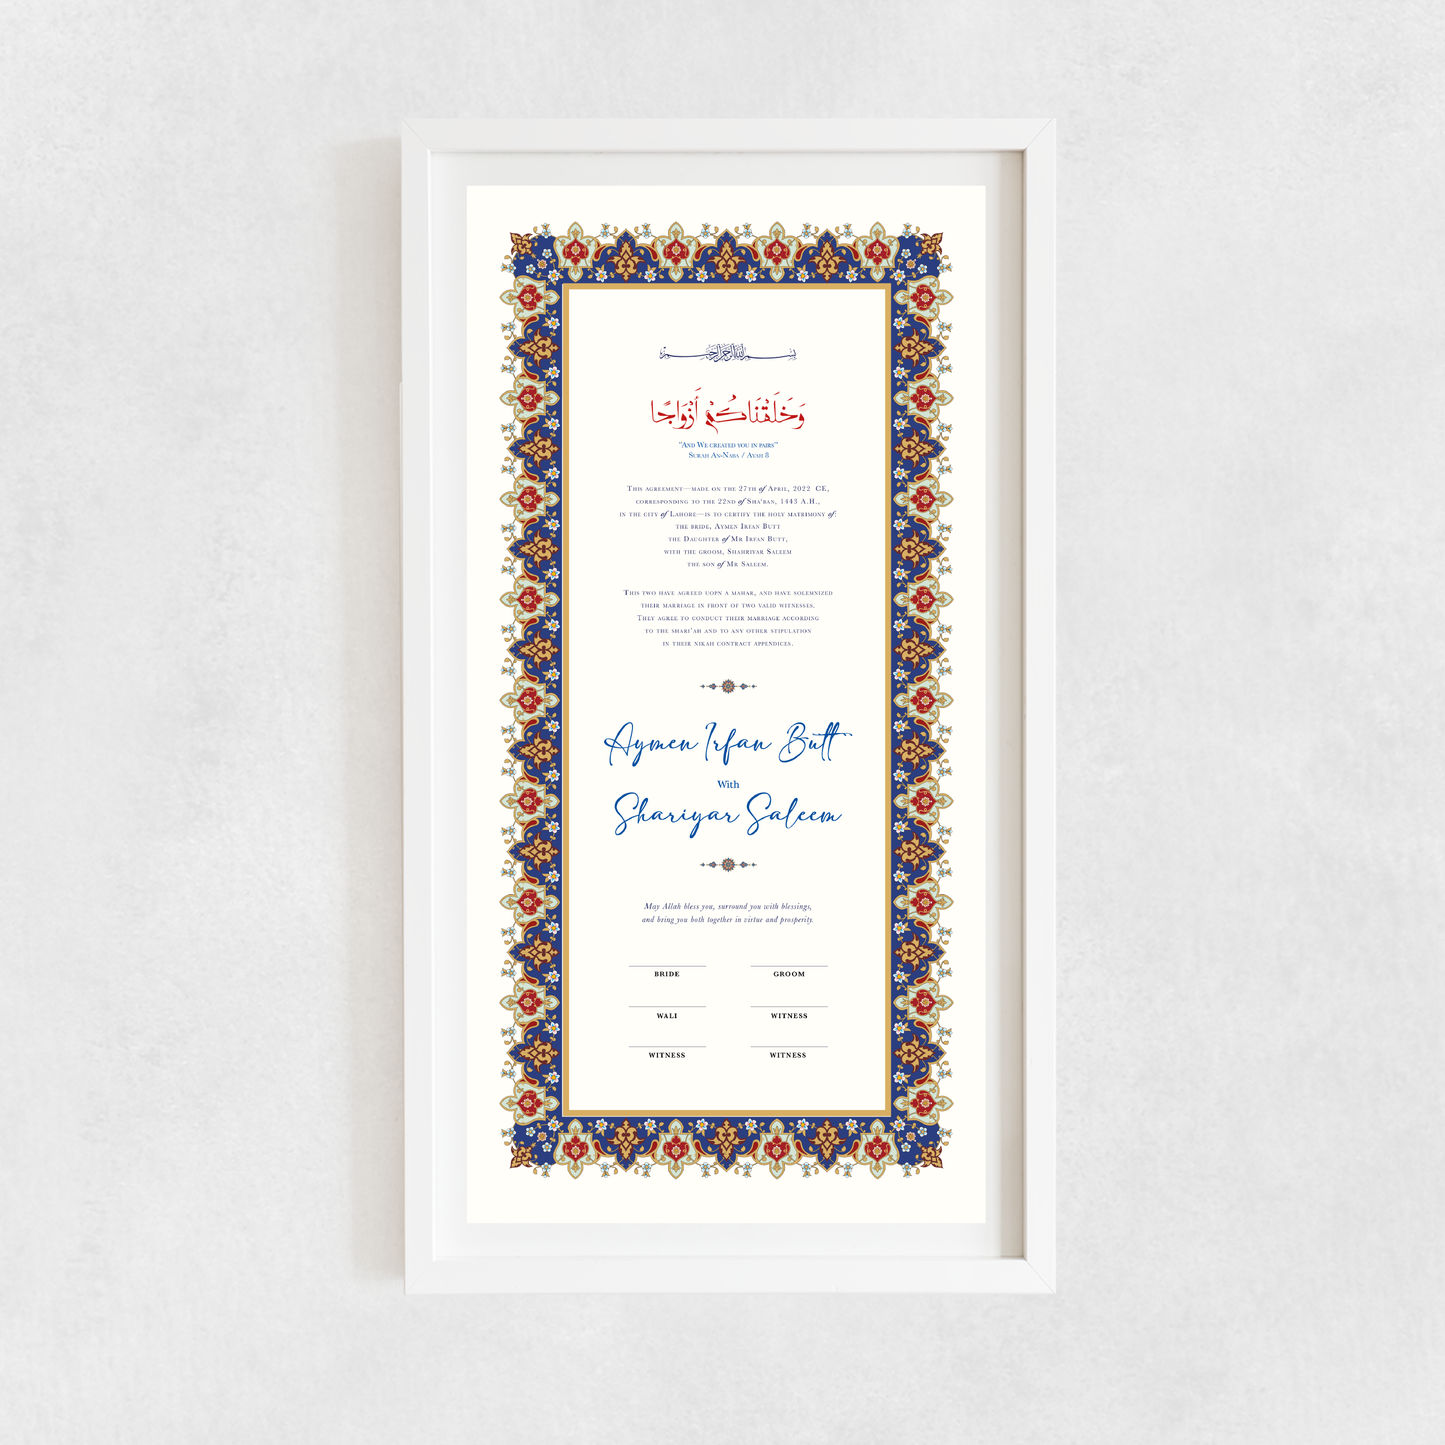 بسم الله الرحمن الرحيم
وَخَلَقْنَاكُمْ أَزْوَاجًا
"And We created you in pairs"
Surah An-Naba / Ayah 8
This agreement—made on the 27th of April, 2022 CE,
corresponding to the 22nd of Sha'ban, 1443 A.H.,
in the city of Lahore—is to certify the holy matrimony of:
the bride, Aymen Irfan Butt
the Daughter of Mr Irfan Butt,
with the groom, Shahriyar Saleem
the son of Mr Saleem.
This two have agreed uopn a mahar, and have solemnized
their marriage in front of two valid witnesses.
They agree to conduct their marriage according
to the shari'ah and to any other stipulation
in their nikah contract appendices.
Aymen Irfan Butt
With
Shariyar Saleem
May Allah bless you, surround you with blessings,
and bring you both together in virtue and prosperity.
BRIDE GROOM
WALI WITNESS
WITNESS WITNESS